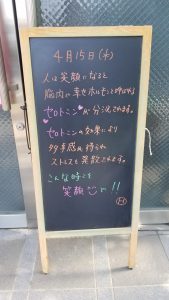 4月15日(水)
人は笑顔になると
脳内に幸せホルモンと呼ばれる
セロトニンが分泌されます。
セロトニンの効果により
多幸感が持られ
ストレスも発散されます。
こんな時こそ
笑顔で!!